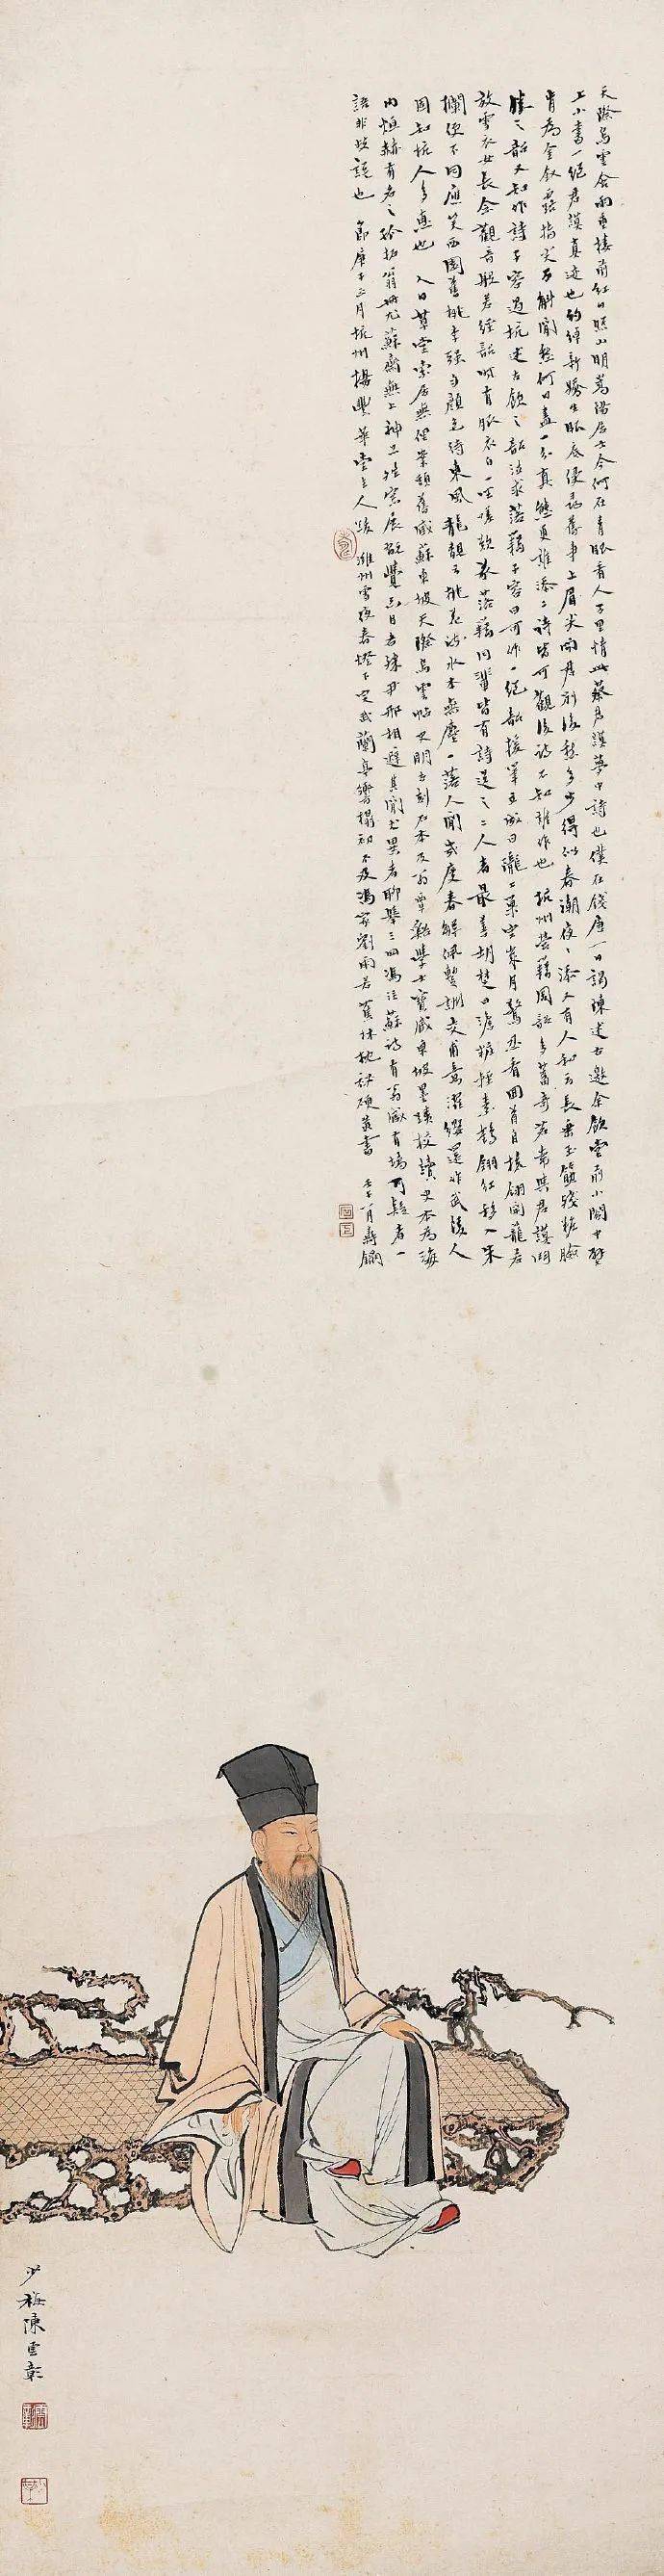 天際烏雲含雨重樓前紅日照山明嵩陽居士今何在青眼看人萬里情此蔡君謨夢中詩也僕在錢唐一日謁陳述古邀余飲堂前小閣中壁
上小書一絕君謨真迹也約綽新嬌生眼底侵尋舊事上眉尖問君別後愁多少得似春潮夜夜添又有人和云長垂玉箸殘粧臉
肯為金釵露指尖萬斛閒愁何日盡一分真態更難添二詩皆可觀後詩不知誰作也 杭州營籍周韶多蓄奇茗常與君謨鬥
勝之韶又知作詩子容過杭述古飲之韶泣求落籍子容曰可作一絕韶援筆立成曰隴上巢空歲月驚忍看回首自梳翎開籠若
放雪衣女長念觀音般若經韶時有服衣白一坐嗟歎遂落籍同輩皆有詩送之二人者最善胡楚曰淡粧輕素鶴翎紅移入朱
欄便不同應笑西園舊桃李強勻顏色待東風龍靚云桃花流水本無塵一落人間幾度春解佩暫酬交甫意濯纓還作武陵人
固知杭人多惠也 人日草堂索居無俚 舊藏蘇東坡天際烏雲帖 明 刻石本及翁覃谿學士寶藏東坡墨蹟校讀 本為海
內烜赫有名之 翁 蘇齋無上神品 者 相避其間尤異者聊舉三四馮注蘇詩有翁藏有塙可疑者一
語非妄議也 庚子三月杭州 華堂主人 濰州雪夜春燈下 蘭亭 馮家劉雨若 硯叢書 壬子 月壽鑈
少梅陳雲彰